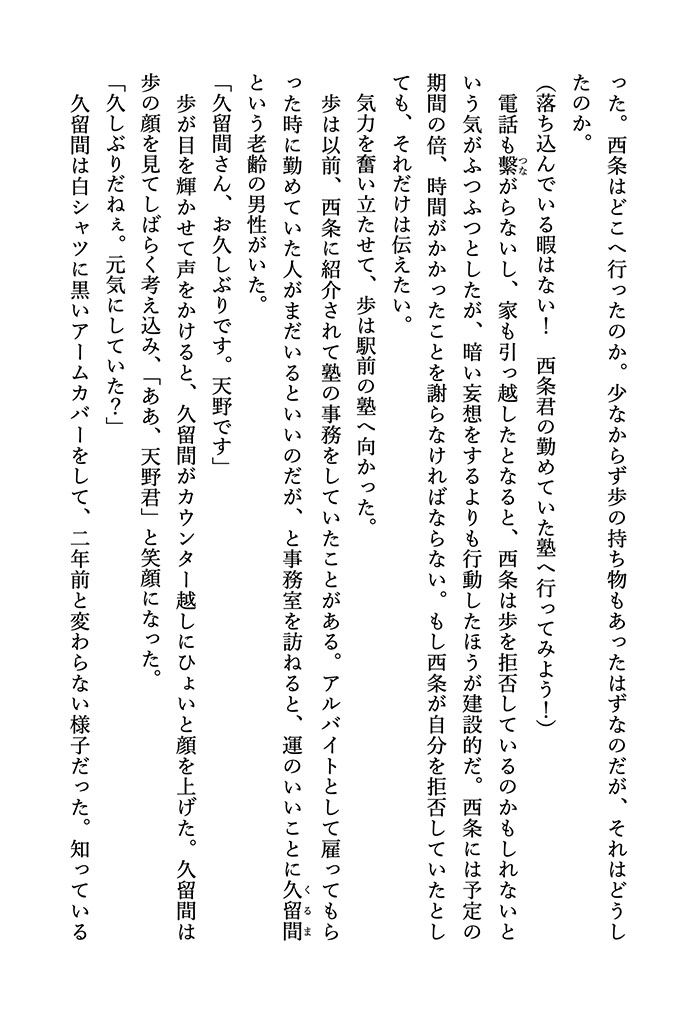 った。西条はどこへ行ったのか。少なからず歩の持ち物もあったはずなのだが、それはどうし
たのか。
（落ち込んでいる暇はない！　西条君の勤めていた塾へ行ってみよう！）
　電話も繫がらないし、家も引っ越したとなると、西条は歩を拒否しているのかもしれないと
いう気がふつふつとしたが、暗い妄想をするよりも行動したほうが建設的だ。西条には予定の
期間の倍、時間がかかったことを謝らなければならない。もし西条が自分を拒否していたとし
ても、それだけは伝えたい。
　気力を奮い立たせて、歩は駅前の塾へ向かった。
　歩は以前、西条に紹介されて塾の事務をしていたことがある。アルバイトとして雇ってもら
った時に勤めていた人がまだいるといいのだが、と事務室を訪ねると、運のいいことに久留間
という老齢の男性がいた。
「久留間さん、お久しぶりです。天野です」
　歩が目を輝かせて声をかけると、久留間がカウンター越しにひょいと顔を上げた。久留間は
歩の顔を見てしばらく考え込み、「ああ、天野君」と笑顔になった。
「久しぶりだねぇ。元気にしていた？」
　久留間は白シャツに黒いアームカバーをして、二年前と変わらない様子だった。知っている
つな
くるま